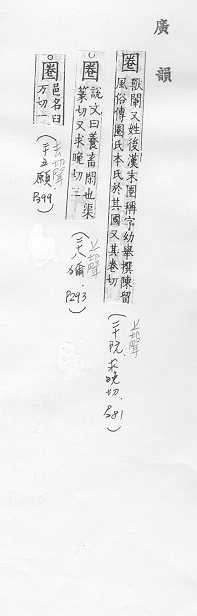 廣韻
圈
獸闌又姓後漢末圈稱字幼舉撰陳留
風俗傳圈氏本氏於其國又其卷切
(二十阮.求晚切.P281)
圈
說文曰養畜閑也渠
篆切又求晚切三
(二十八獮.P293)
圈
邑名臼
万切一
(二十五願P399)